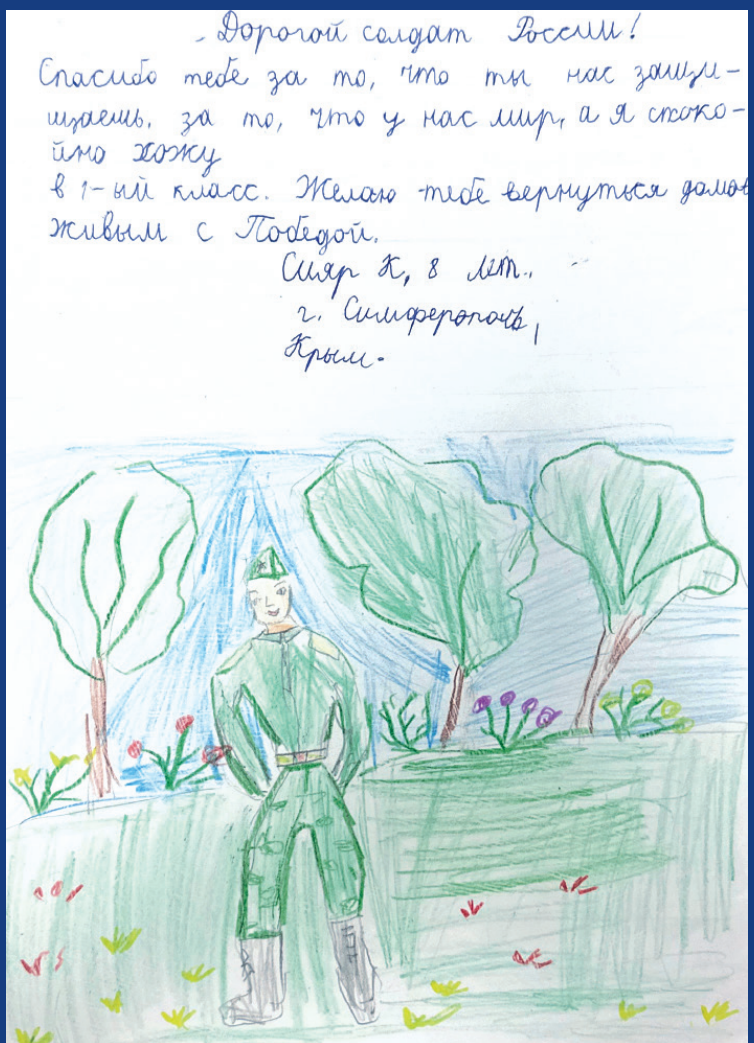 Дорогой солдат России!
Спасибо тебе за то, что ты нас защи-
щаешь, за то, что у нас мир, а я споко-
йно хожу
в 1-ый класс. Желаю тебе вернуться домой
живым с Победой.
Сияр К, 8 лет.,
г. Симферополь,
Крым.